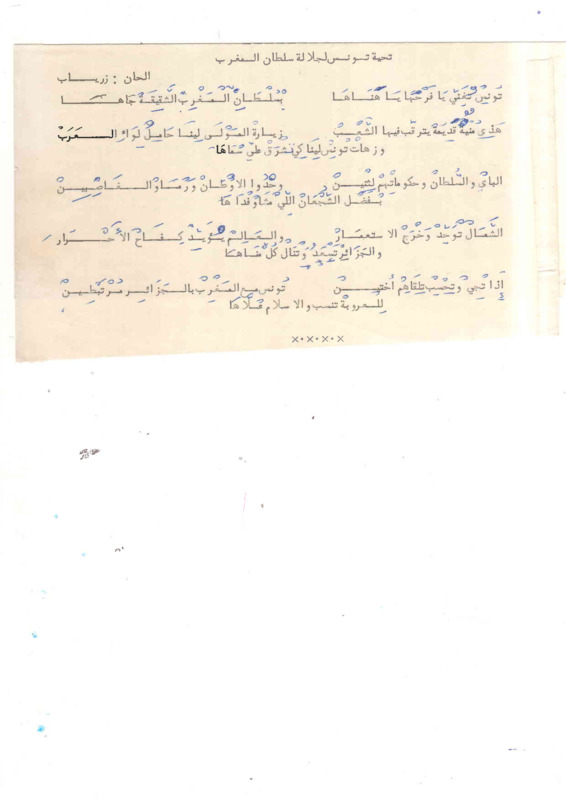 تحية تونس لجلالة سلطان المغرب
الحان : زرياب
تونس تغني يا فرحها يا هناها بسلطان المغرب الشقيقة جاها
هذي منية قديمة يترقب فيها الشعب زيارة المولى لينا حامل لواء العرب
وزهات تونس لينا كي تشرق طي سماها
الباي والسلطان وحكوماتهم لثنين وحدوا الاوطان ورماو الغاصبين
بفضل الشجعان اللي مشاو فداها
الشمال توحد وخرج الاستعمار والعالم يؤيد كفاح الأحرار
والجزائر تسعد وتنال كل مناها
اذا تجي وتحسب تلقاهم أختين تونس مع المغرب بالجزائر مرتبطين
للعروبة تنسب والاسلام
x٠x٠x٠x